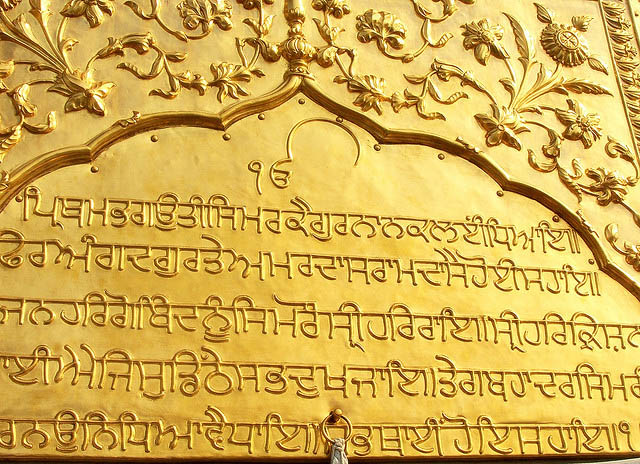 ੴ
ਪ੍ਰਿਥਮਭਗਉਤੀਸਿਮਰਕੈਗੁਰਨਾਨਕਲਈਂਧਿਆਇ॥
ਫੇਰਅੰਗਦਗੁਰਤੇਅਮਰਦਾਸਰਾਮਦਾਸੈਹੋਈਸਹਾਇ॥
ਜਨਹਰਿਗੋਬਿੰਦਨੂੰਸਿਮਰੌਸ੍ਰੀਹਰਿਰਾਇ॥ਸ੍ਰੀਹਰਿਕ੍ਰਿਸਨ
ਾਈਐਜਿਸੁਡਿੱਠੇਸਭਦੁਖਜਾਇ॥ਤੇਗਬਹਾਦਰਸਿਮਰ
ਰਨਉਨਿਧਿਆਵੈਧਾਇ॥ਸਭਥਾਈਂਹੋਇਸਹਾਇ॥੧